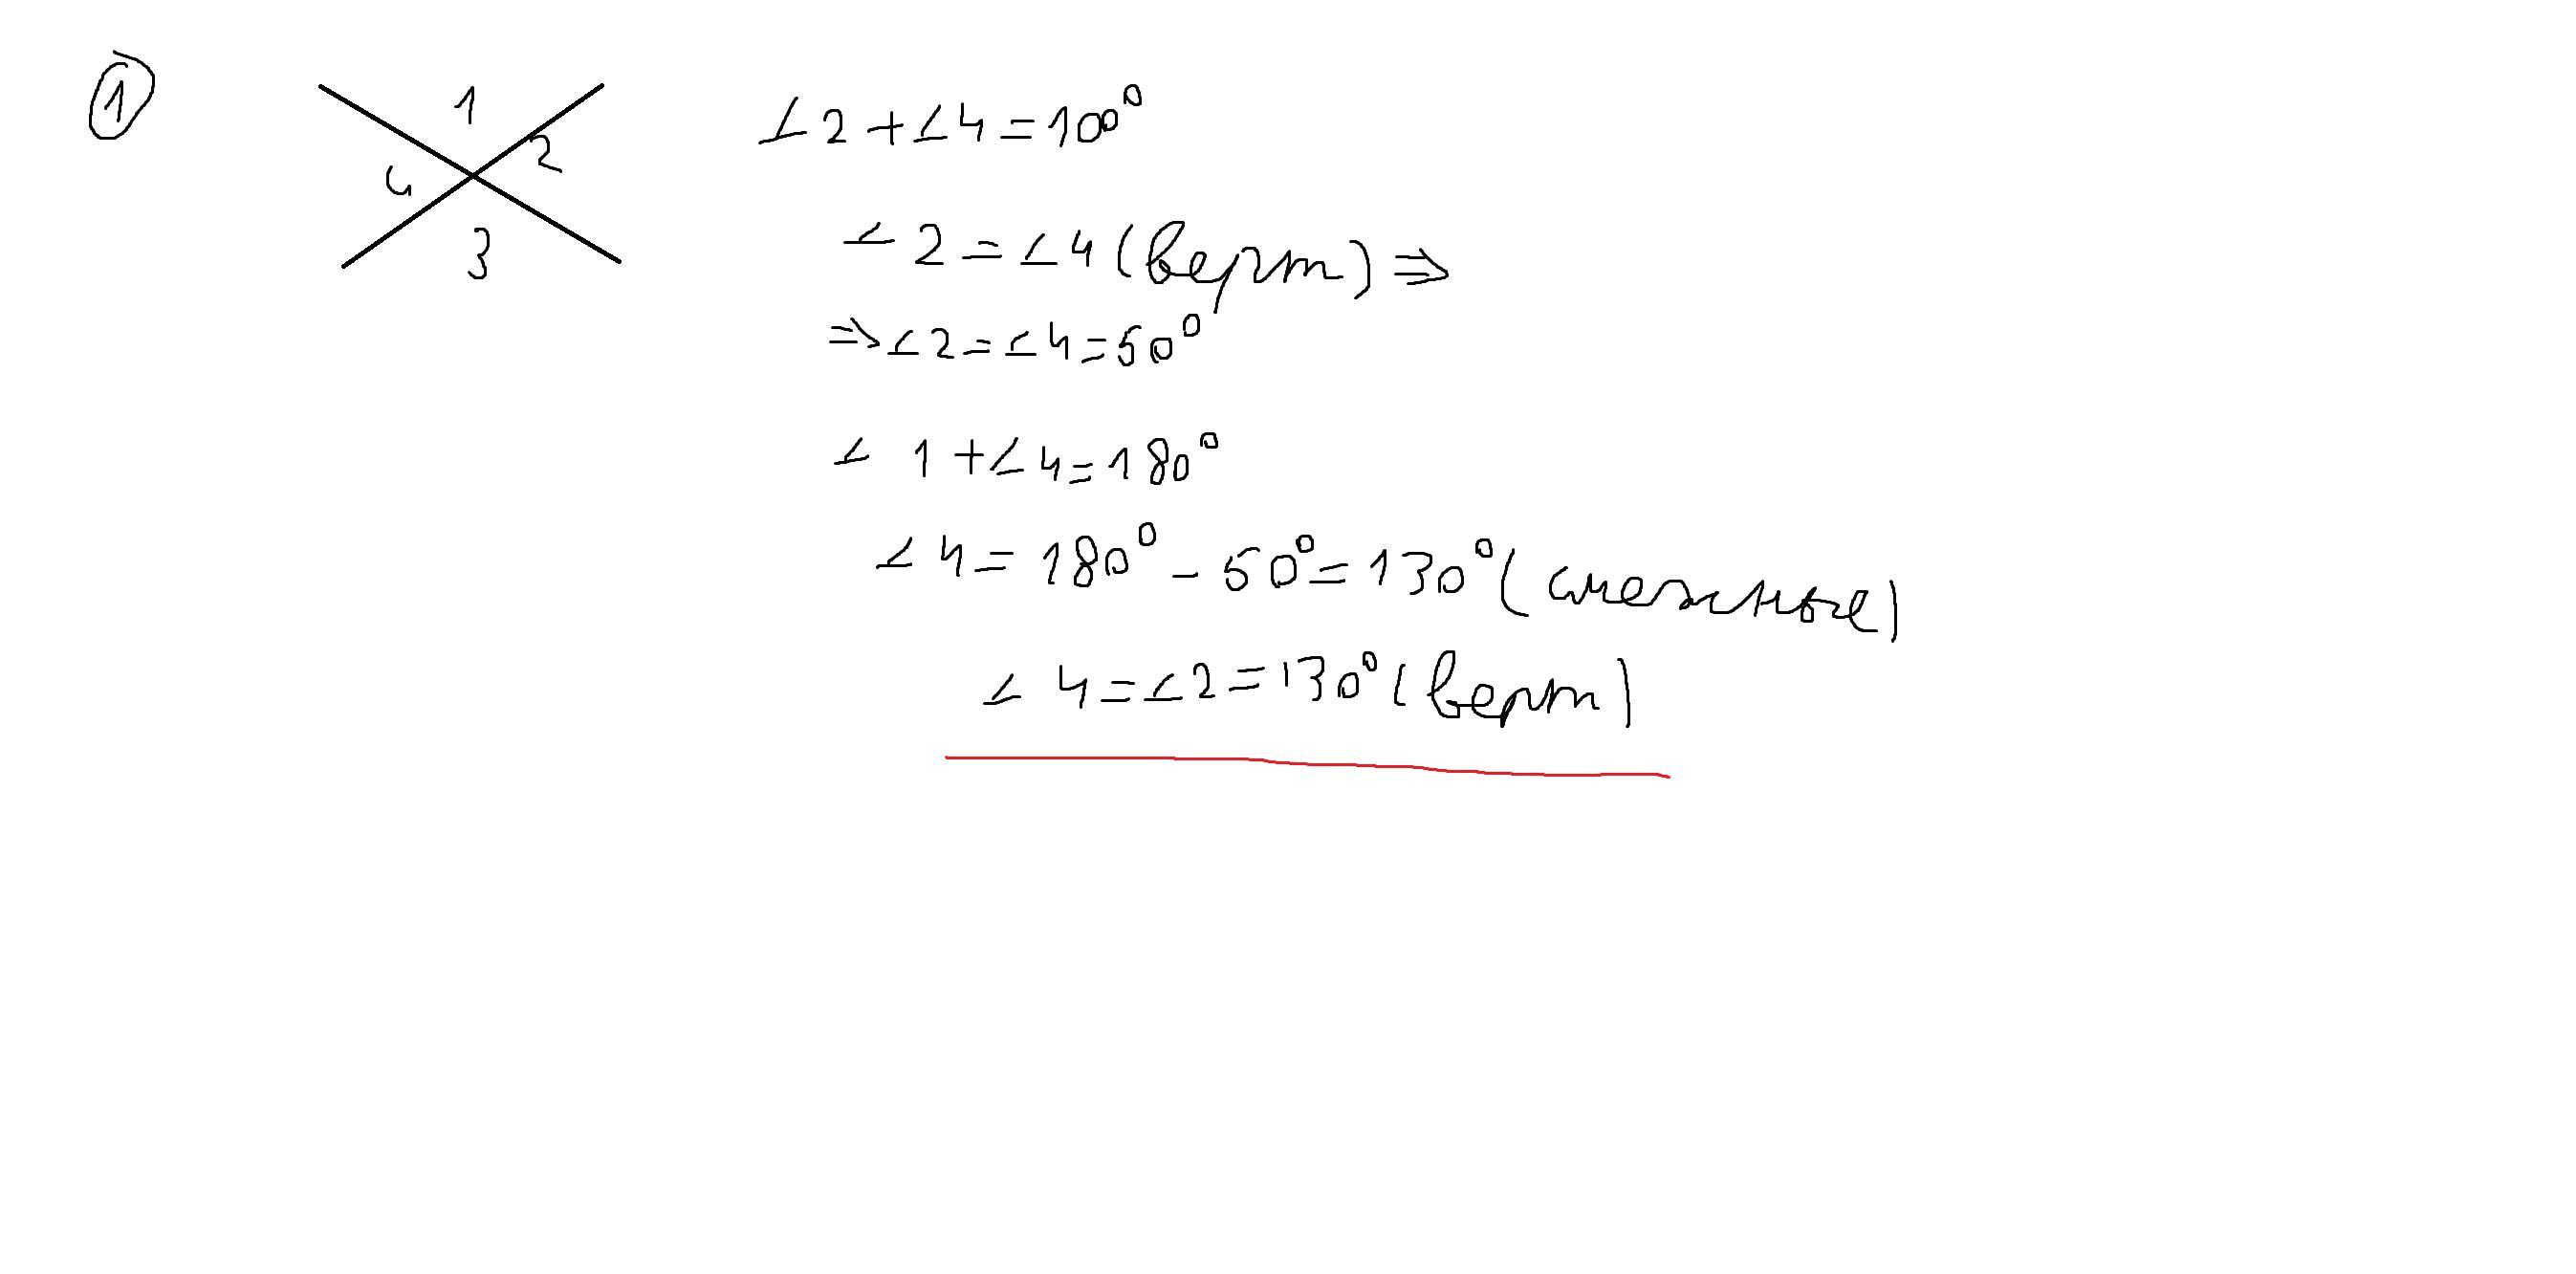 1
1
2
4
3
∠2+∠4=100°
∠2=∠4(верт)⇒
⇒∠2=∠4=50°
∠1+∠4=180°
∠4=180°-50°=130°(смежные)
∠4=∠2=130°(верт)